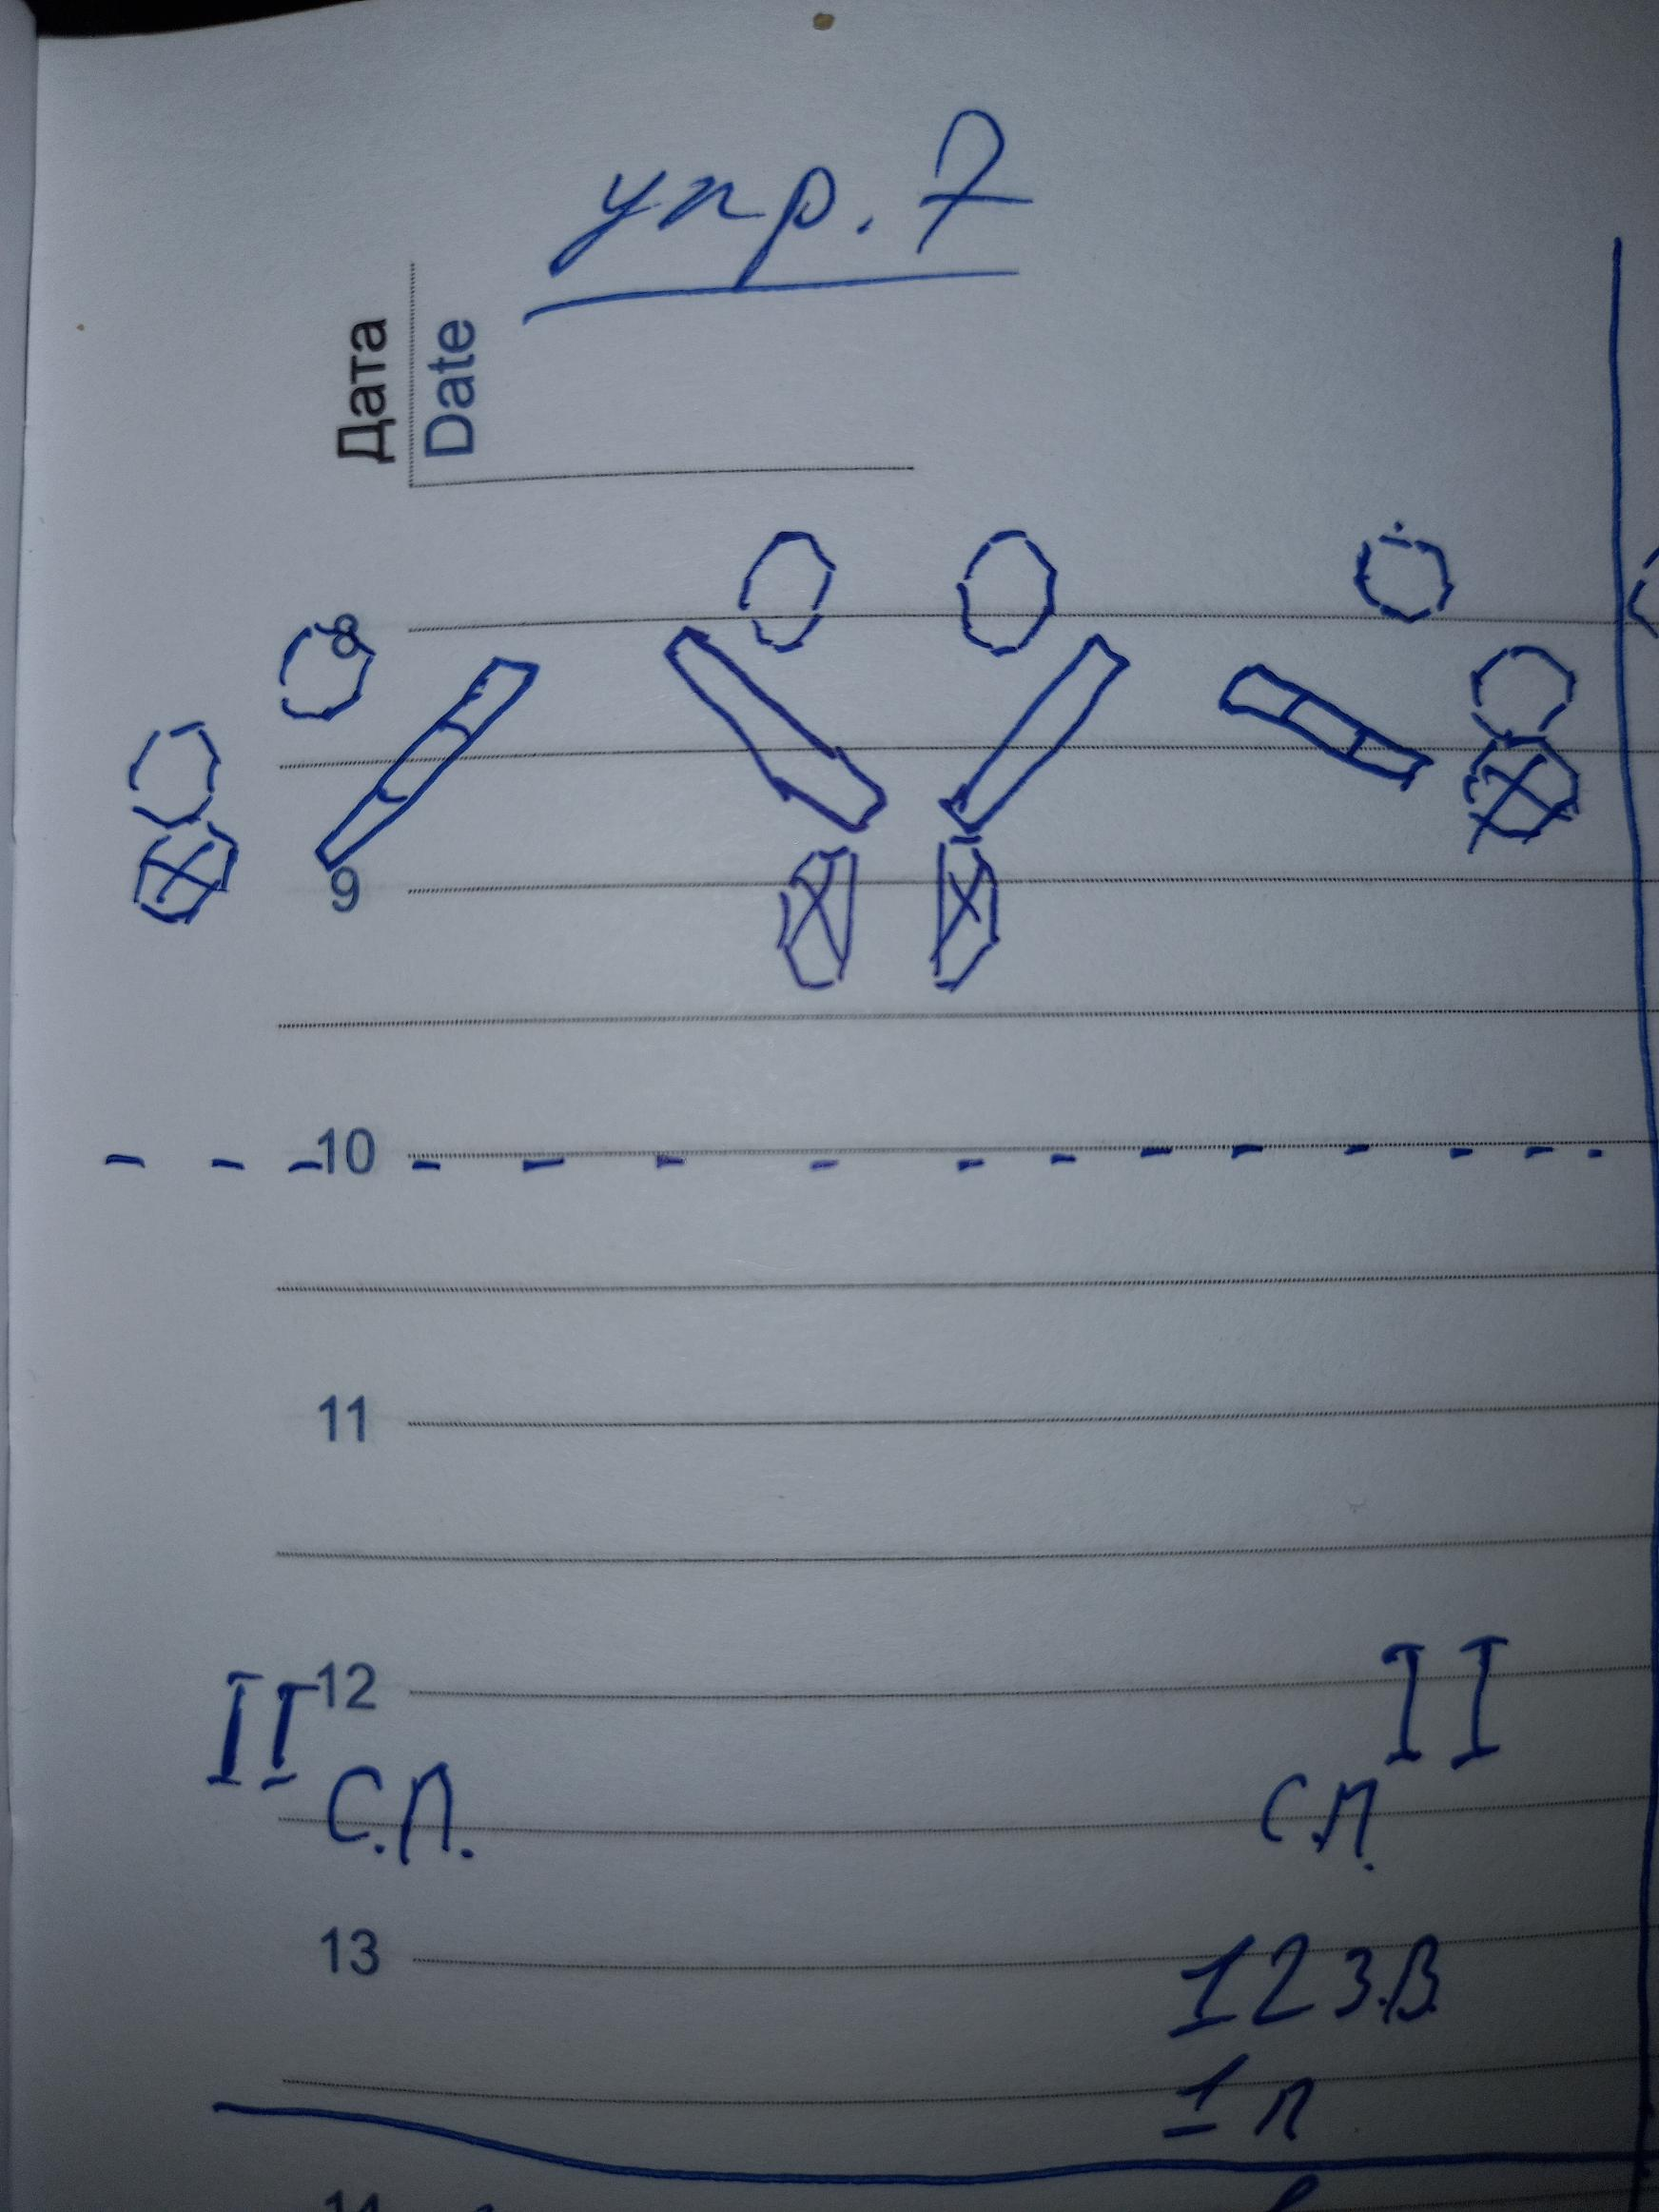 упр. 7
Дата
Date
8
9
10
11
12
II II
С.П. С.П.
13
12 З.В.
1 п
14